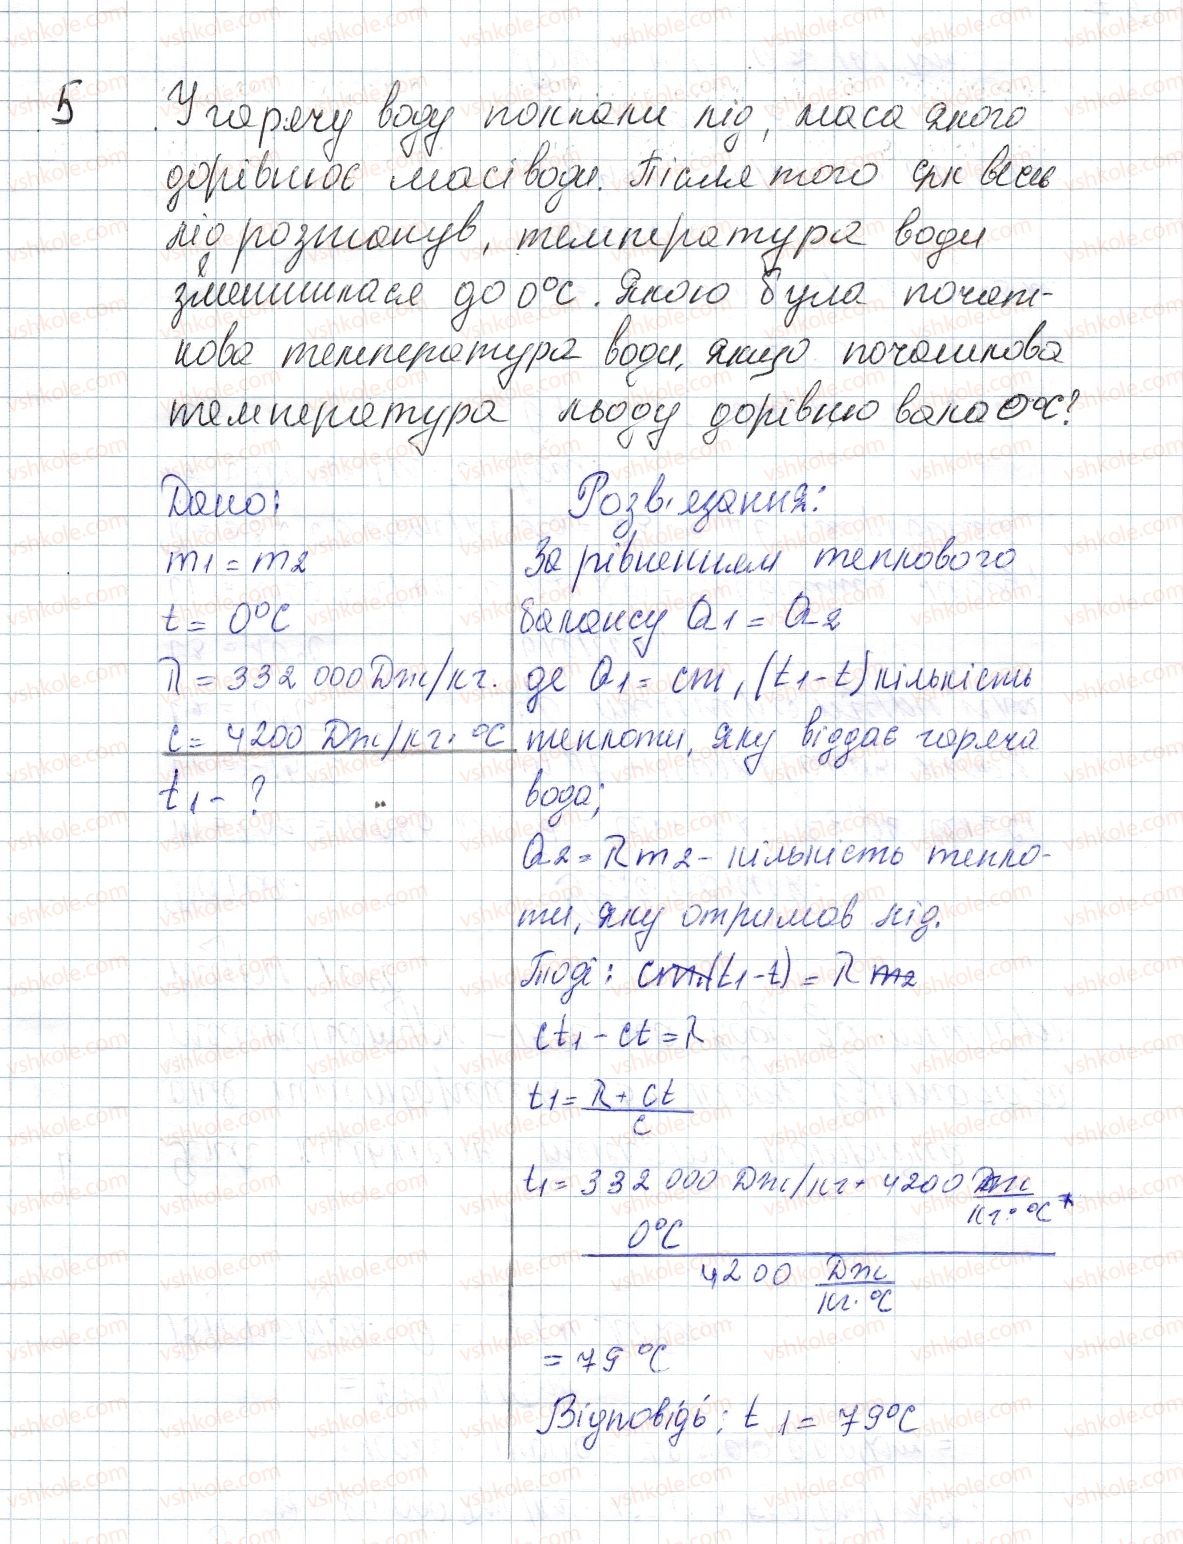 5 У гарячу воду поклали лід, маса якого
дорівнює масі води. Після того як весь
лід розтанув, температура води
зменшилася до 0°С. Якою була почат-
кова температура води, якщо початкова
температура льоду дорівнювала 0°С?
Дано:
m1 = m2
t = 0°С
λ = 332 000 Дж/кг.
c = 4200 Дж/кг·°С
t1 - ?
Розв'язання:
За рівненням теплового
балансу Q1 = Q2
де Q1 = cm1(t1-t) кількість
теплоти, яку віддає гаряча
вода;
Q2 = λm2 - кількість тепло-
ти, яку отримав лід.
Тоді: cm1(t1-t) = λm2
ct1 - ct = λ
t1 = λ + ct
c
t1 = 332 000 Дж/кг + 4200 Дж
кг·°С *
0°С
4200 Дж
кг·°С
= 79°С
Відповідь: t1 = 79°С